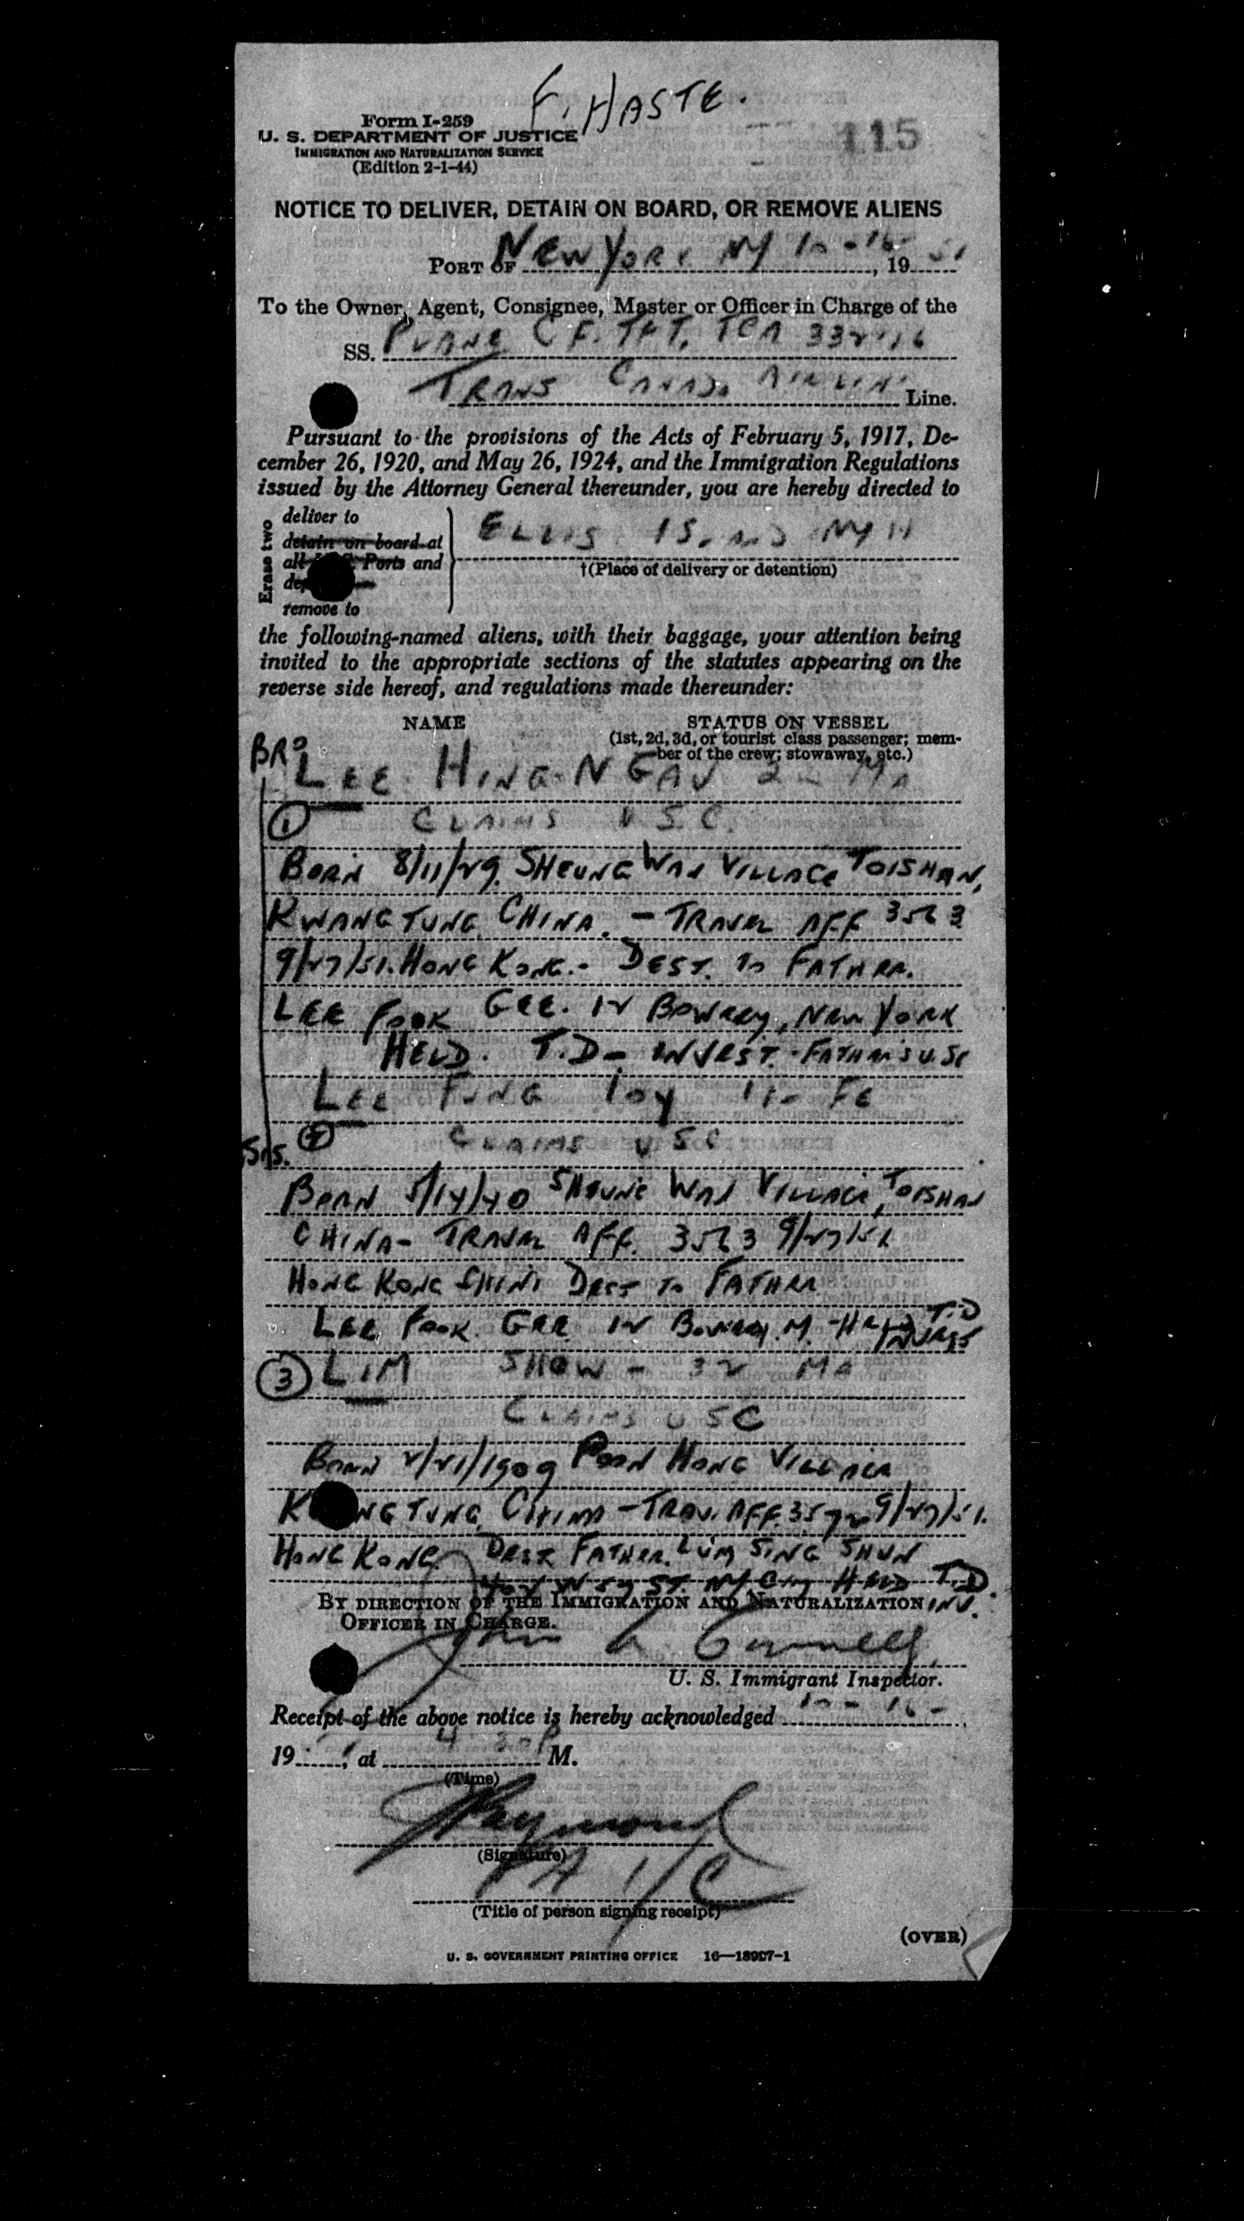 F. HASTE.
Form I-259
U. S. DEPARTMENT OF JUSTICE
115
IMMIGRATION AND NATURALIZATION SERVICE
(Edition 2-1-44)
NOTICE TO DELIVER, DETAIN ON BOARD, OR REMOVE ALIENS
PORT OF New York NY 10-16-, 1951
To the Owner, Agent, Consignee, Master or Officer in Charge of the
SS. PLANE CF. TFT, TCA
TRANS CANADA AIRLINE Line.
Pursuant to the provisions of the Acts of February 5, 1917, De-
cember 26, 1920, and May 26, 1924, and the Immigration Regulations
issued by the Attorney General thereunder, you are hereby directed to
Erase two
deliver to
detain on board at
all Ports and
remove to
ELLIS ISLAND NYH
†(Place of delivery or detention)
the following-named aliens, with their baggage, your attention being
invited to the appropriate sections of the statutes appearing on the
reverse side hereof, and regulations made thereunder:
NAME STATUS ON VESSEL
(1st, 2d, 3d, or tourist class passenger; mem-
ber of the crew; stowaway, etc.)
BRO LEE HING NGAU MA
1 CLAIMS U.S.C.
BORN 8/11/29. SHEUNG WAN VILLAGE TOISHAN,
KWANGTUNG, CHINA. - TRAVEL AFF 3563
9/27/51. HONG KONG. - DEST. TO FATHER.
LEE FOOK GEE. 12 BOWERY, NEW YORK
HELD. T.D- INVEST. - FATHER'S USC
LEE FUNG TOY 11- FE
SIS. 2 CLAIMS USC
BORN 5/14/40 SHEUNG WAN VILLAGE, TOISHAN
CHINA- TRAVEL AFF. 3563 9/27/51
HONG KONG DEST TO FATHER
LEE FOOK GEE 12 BOWERY. - HELD T.D
INVES
3 LIM SHOW - 32 MA
CLAIMS USC
BORN 2/21/1909 POON HONG VILLAGE
KWANGTUNG, CHINA - TRAV. AFF. 3572 9/27/51.
HONG KONG. DEST FATHER. LUM SING SHUN
ST. NY City HELD T.D.
INV.
BY DIRECTION OF THE IMMIGRATION AND NATURALIZATION
OFFICER IN CHARGE.
John A.
U. S. Immigrant Inspector.
Receipt of the above notice is hereby acknowledged 10-16-,
19 , at 4 30 P M.
(Time)
Raymond
(Signature)
(Title of person signing receipt)
(OVER)
U. S. GOVERNMENT PRINTING OFFICE 16—18997-1